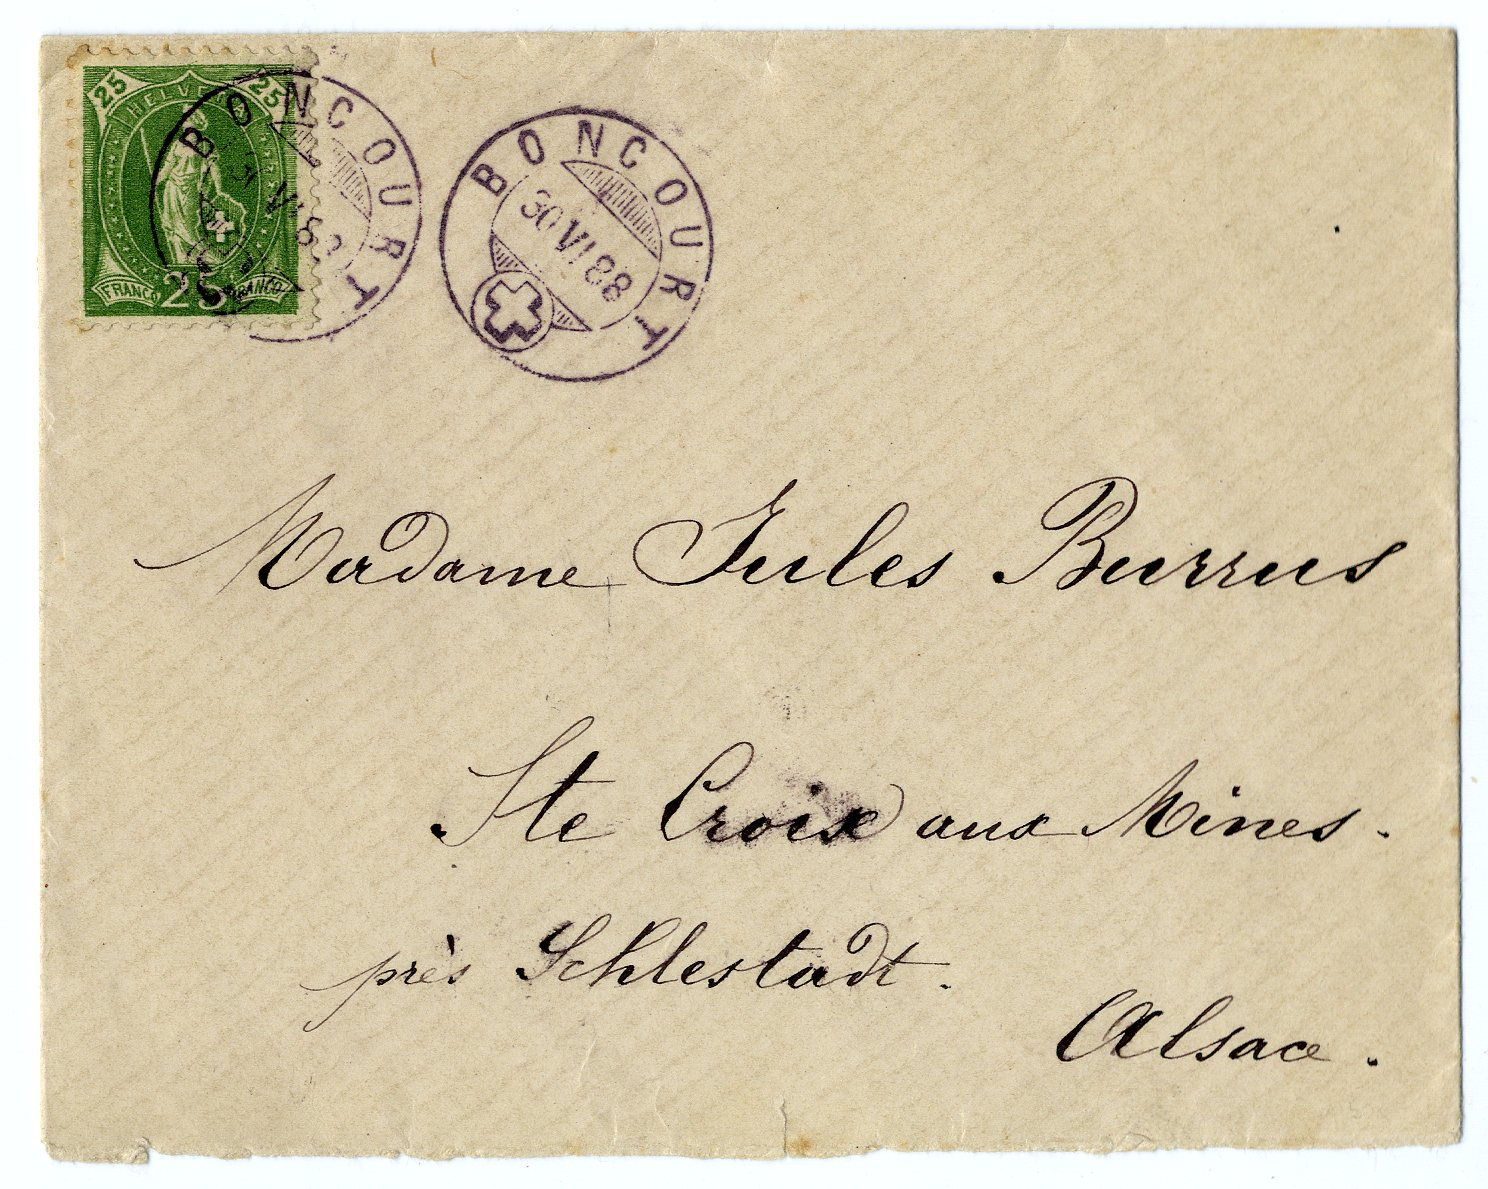 25 HELVETIA 25
FRANCO 25 FRANCO
BONCOURT
BONCOURT
30 VI 88
Madame Jules Burrus
Ste Croix aux Mines.
près Schlestadt.
Alsace.